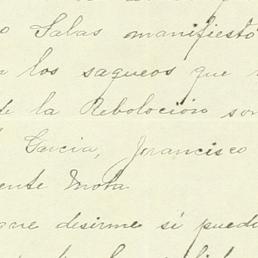 o Salas manifiestó
los saqueos que
de la Reboloción son
Garcia, Francisco
ente Mota
que desirme si puede